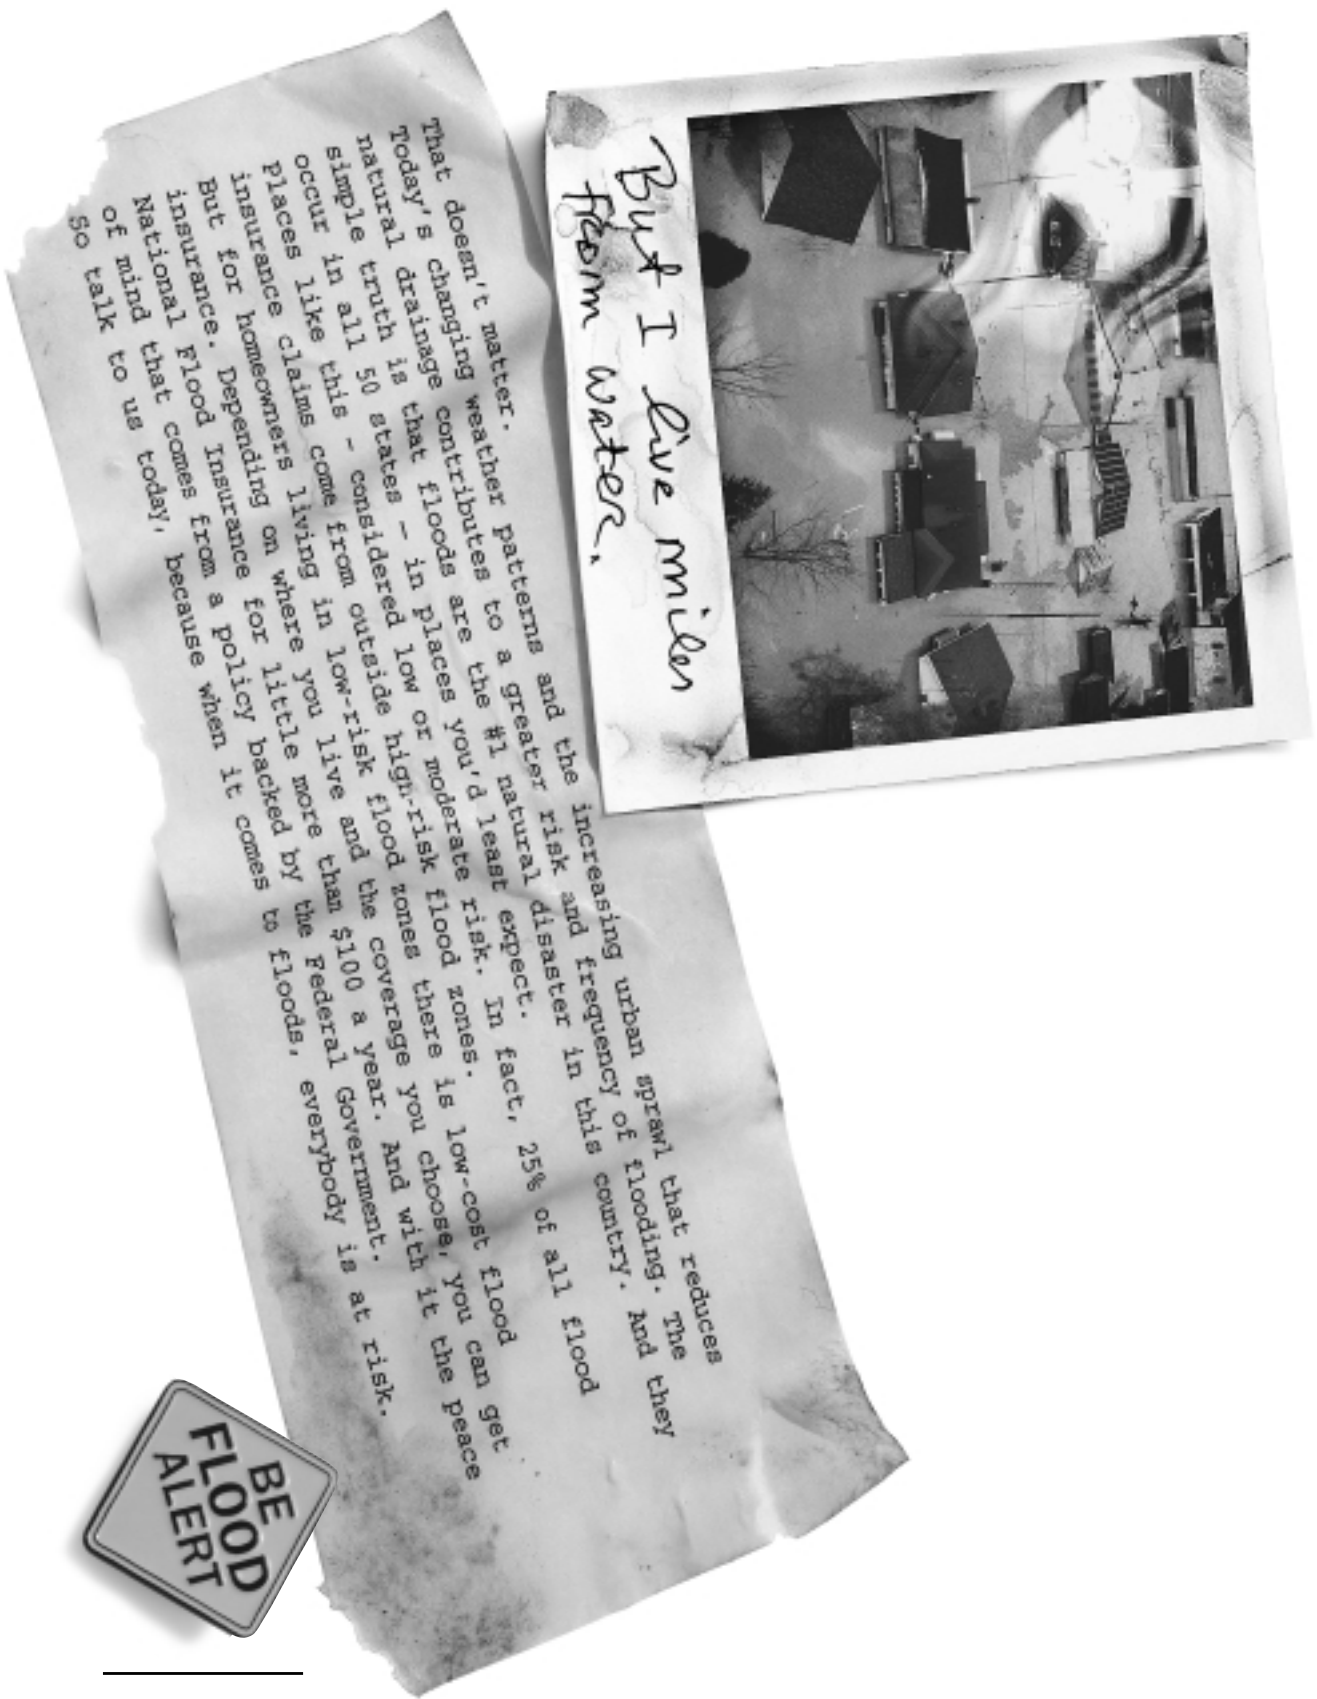 But I live miles
from water.
That doesn't matter.
Today's changing weather patterns and the increasing urban sprawl that reduces
natural drainage contributes to a greater risk and frequency of flooding. The
simple truth is that floods are the #1 natural disaster in this country. And they
occur in all 50 states - in places you'd least expect.
places like this - considered low or moderate risk. In fact, 25% of all flood
insurance claims come from outside high-risk flood zones.
But for homeowners living in low-risk flood zones there is low-cost flood
insurance. Depending on where you live and the coverage you choose, you can get
National Flood Insurance for little more than $100 a year. And with it the peace
of mind that comes from a policy backed by the Federal Government.
So talk to us today, because when it comes to floods, everybody is at risk.
BE
FLOOD
ALERT